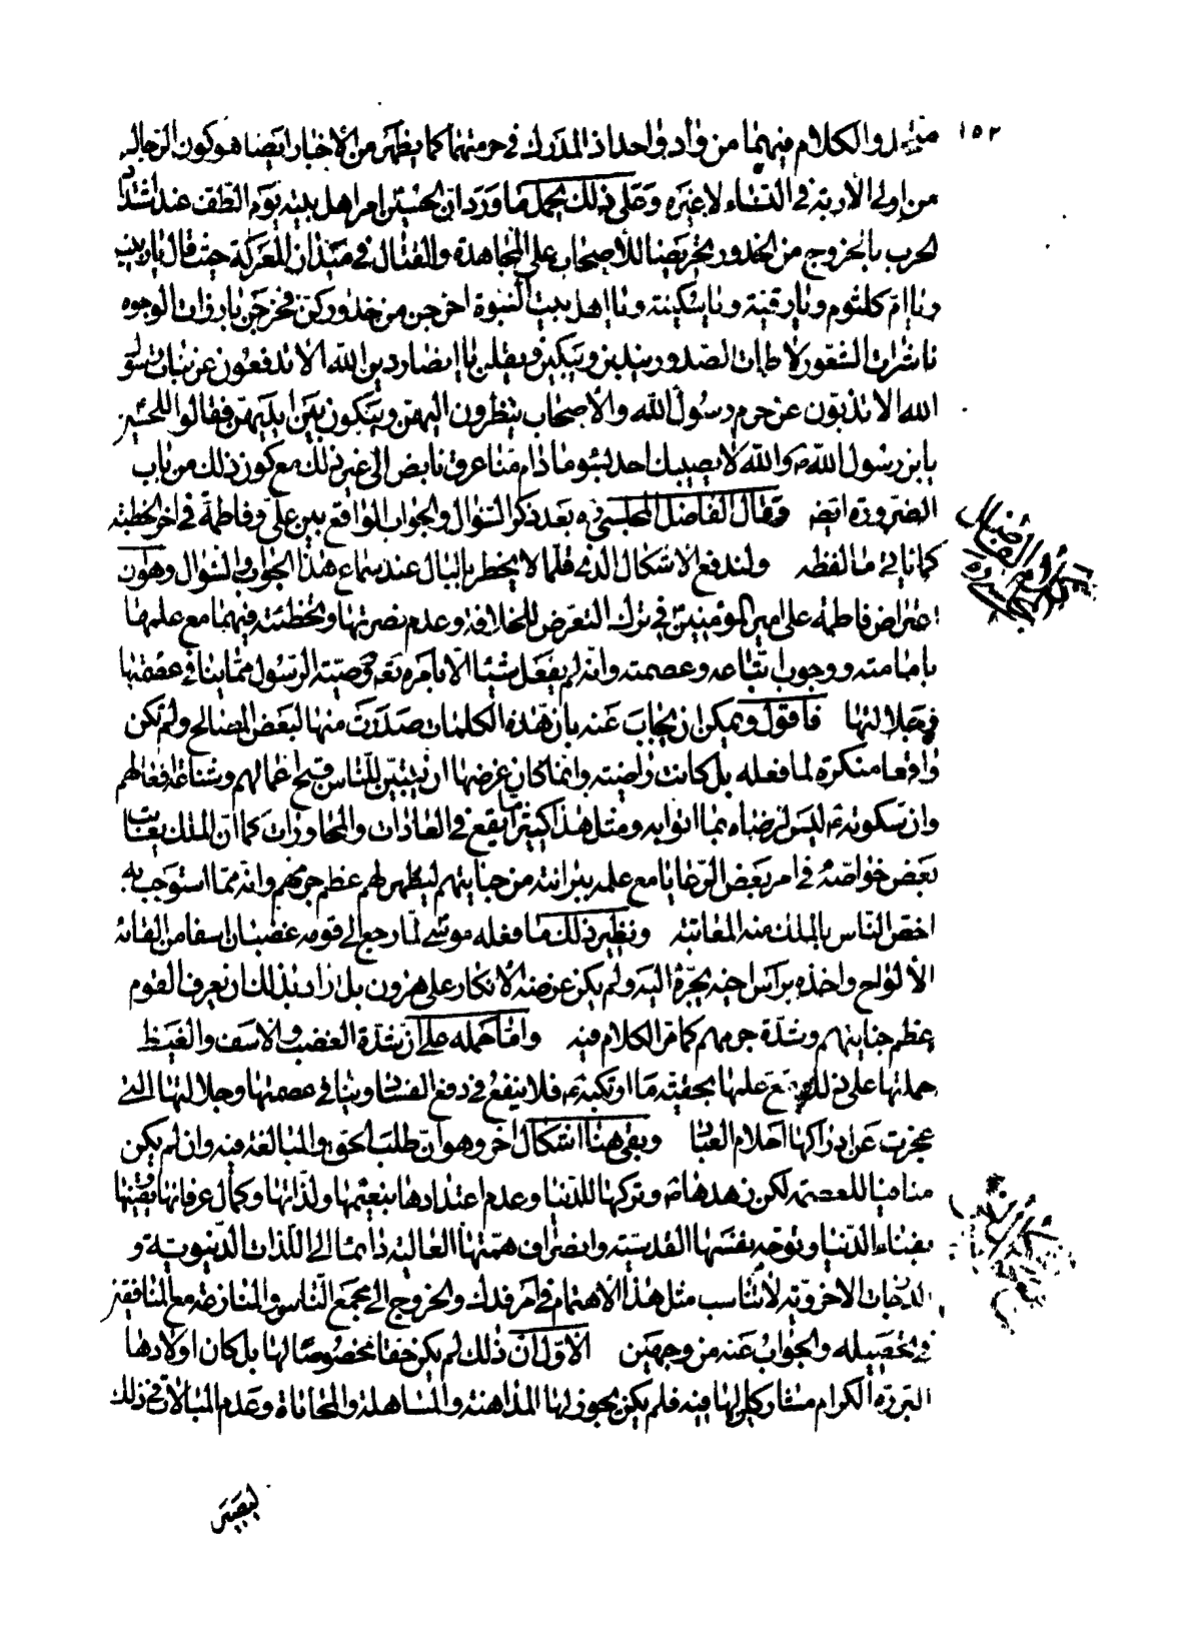 ١٥٢
والكلام فيهما من واد واحد اذ المدرك في حرمتهما كما يظهر من الاخبار ايضا هو كون الرجال
من اولى الاربة في النساء لا غيره وعلى ذلك يحمل ما ورد ان الحسين امر اهل بيته يوم الطف عند اشتداد
الحرب بالخروج من الخدور تحريضا للاصحاب على المجاهدة والقتال في ميدان المعركة حيث قال يا زينب
ويا ام كلثوم ويا رقية ويا سكينة ويا اهل بيت النبوة اخرجن من خدوركن فخرجن بارزات الوجوه
ناشرات الشعور لاطمات الصدور يندبن ويبكين ويقلن يا انصار دين الله الا تدفعون عن بنات رسول
الله الا تذبون عن حرم رسول الله والاصحاب ينظرون اليهن ويبكون بين ايديهن فقالوا للحسين
يا بن رسول الله والله لا يصيبك احد بسوء ما دام منا عرق نابض الى غير ذلك مع كون ذلك من باب
الضرورة ايضا وقال الفاضل المجلسي ره بعد ذكر السؤال والجواب الواقع بين علي وفاطمة في اخر الخطبة
كما ياتي ما لفظه ولندفع الاشكال الذي قلما لا يخطر بالبال عند سماع هذا الجواب والسؤال وهو ان
اعتراض فاطمة على امير المؤمنين في ترك التعرض للخلافة وعدم نصرتها وتخطئته فيهما مع علمها
بامامته ووجوب اتباعه وعصمته وانه لم يفعل شيئا الا بامره تعالى ووصية الرسول مما ينافي عصمتها
وجلالتها فاقول ويمكن ان يجاب عنه بان هذه الكلمات صدرت منها لبعض المصالح ولم تكن
واقعا منكرة لما فعله بل كانت راضية وانما كان غرضها ان يتبين للناس قبح اعمالهم وشناعة افعالهم
وان سكوته ليس لرضاه بما اتوا به ومثل هذا كثيرا ما يقع في العادات والمحاورات كما ان الملك يعاتب
بعض خواصه في امر بعض الرعايا مع علمه ببرائته من جنايتهم ليظهر لهم عظم جرمهم وانه مما استوجب به
اخص الناس بالملك منه المعاتبة ونظير ذلك ما فعله موسى لما رجع الى قومه غضبان اسفا من القائه
الالواح واخذه براس اخيه يجره اليه ولم يكن غرضه الانكار على هرون بل اراد بذلك ان يعرف القوم
عظم جنايتهم وشدة جرمهم كما مر الكلام فيه واما حمله على ان شدة الغضب والاسف والغيظ
حملتها على ذلك مع علمها بحقية ما ارتكبه فلا ينفع في دفع الفساد وينافي عصمتها وجلالتها التي
عجزت عن ادراكها احلام العباد وبقي هنا اشكال اخر وهو ان طلب الحق والمبالغة فيه وان لم يكن
منافيا للعصمة لكن زهدها وتركها للدنيا وعدم اعتدادها بنعيمها ولذاتها وكمال عرفانها ويقينها
بفناء الدنيا وتوجه نفسها القدسية وانصراف همتها العالية دائما الى اللذات الدنيوية و
الدرجات الاخروية لا تناسب مثل هذا الاهتمام في امر فدك والخروج الى مجمع الناس والمنازعة مع المنافقين
في تحصيله والجواب عنه من وجهين الاول ان ذلك لم يكن حقا مخصوصا لها بل كان اولادها
البررة الكرام مشاركين لها فيه فلم يكن يجوز لها المداهنة والمساهلة والمحاباة وعدم المبالاة في ذلك